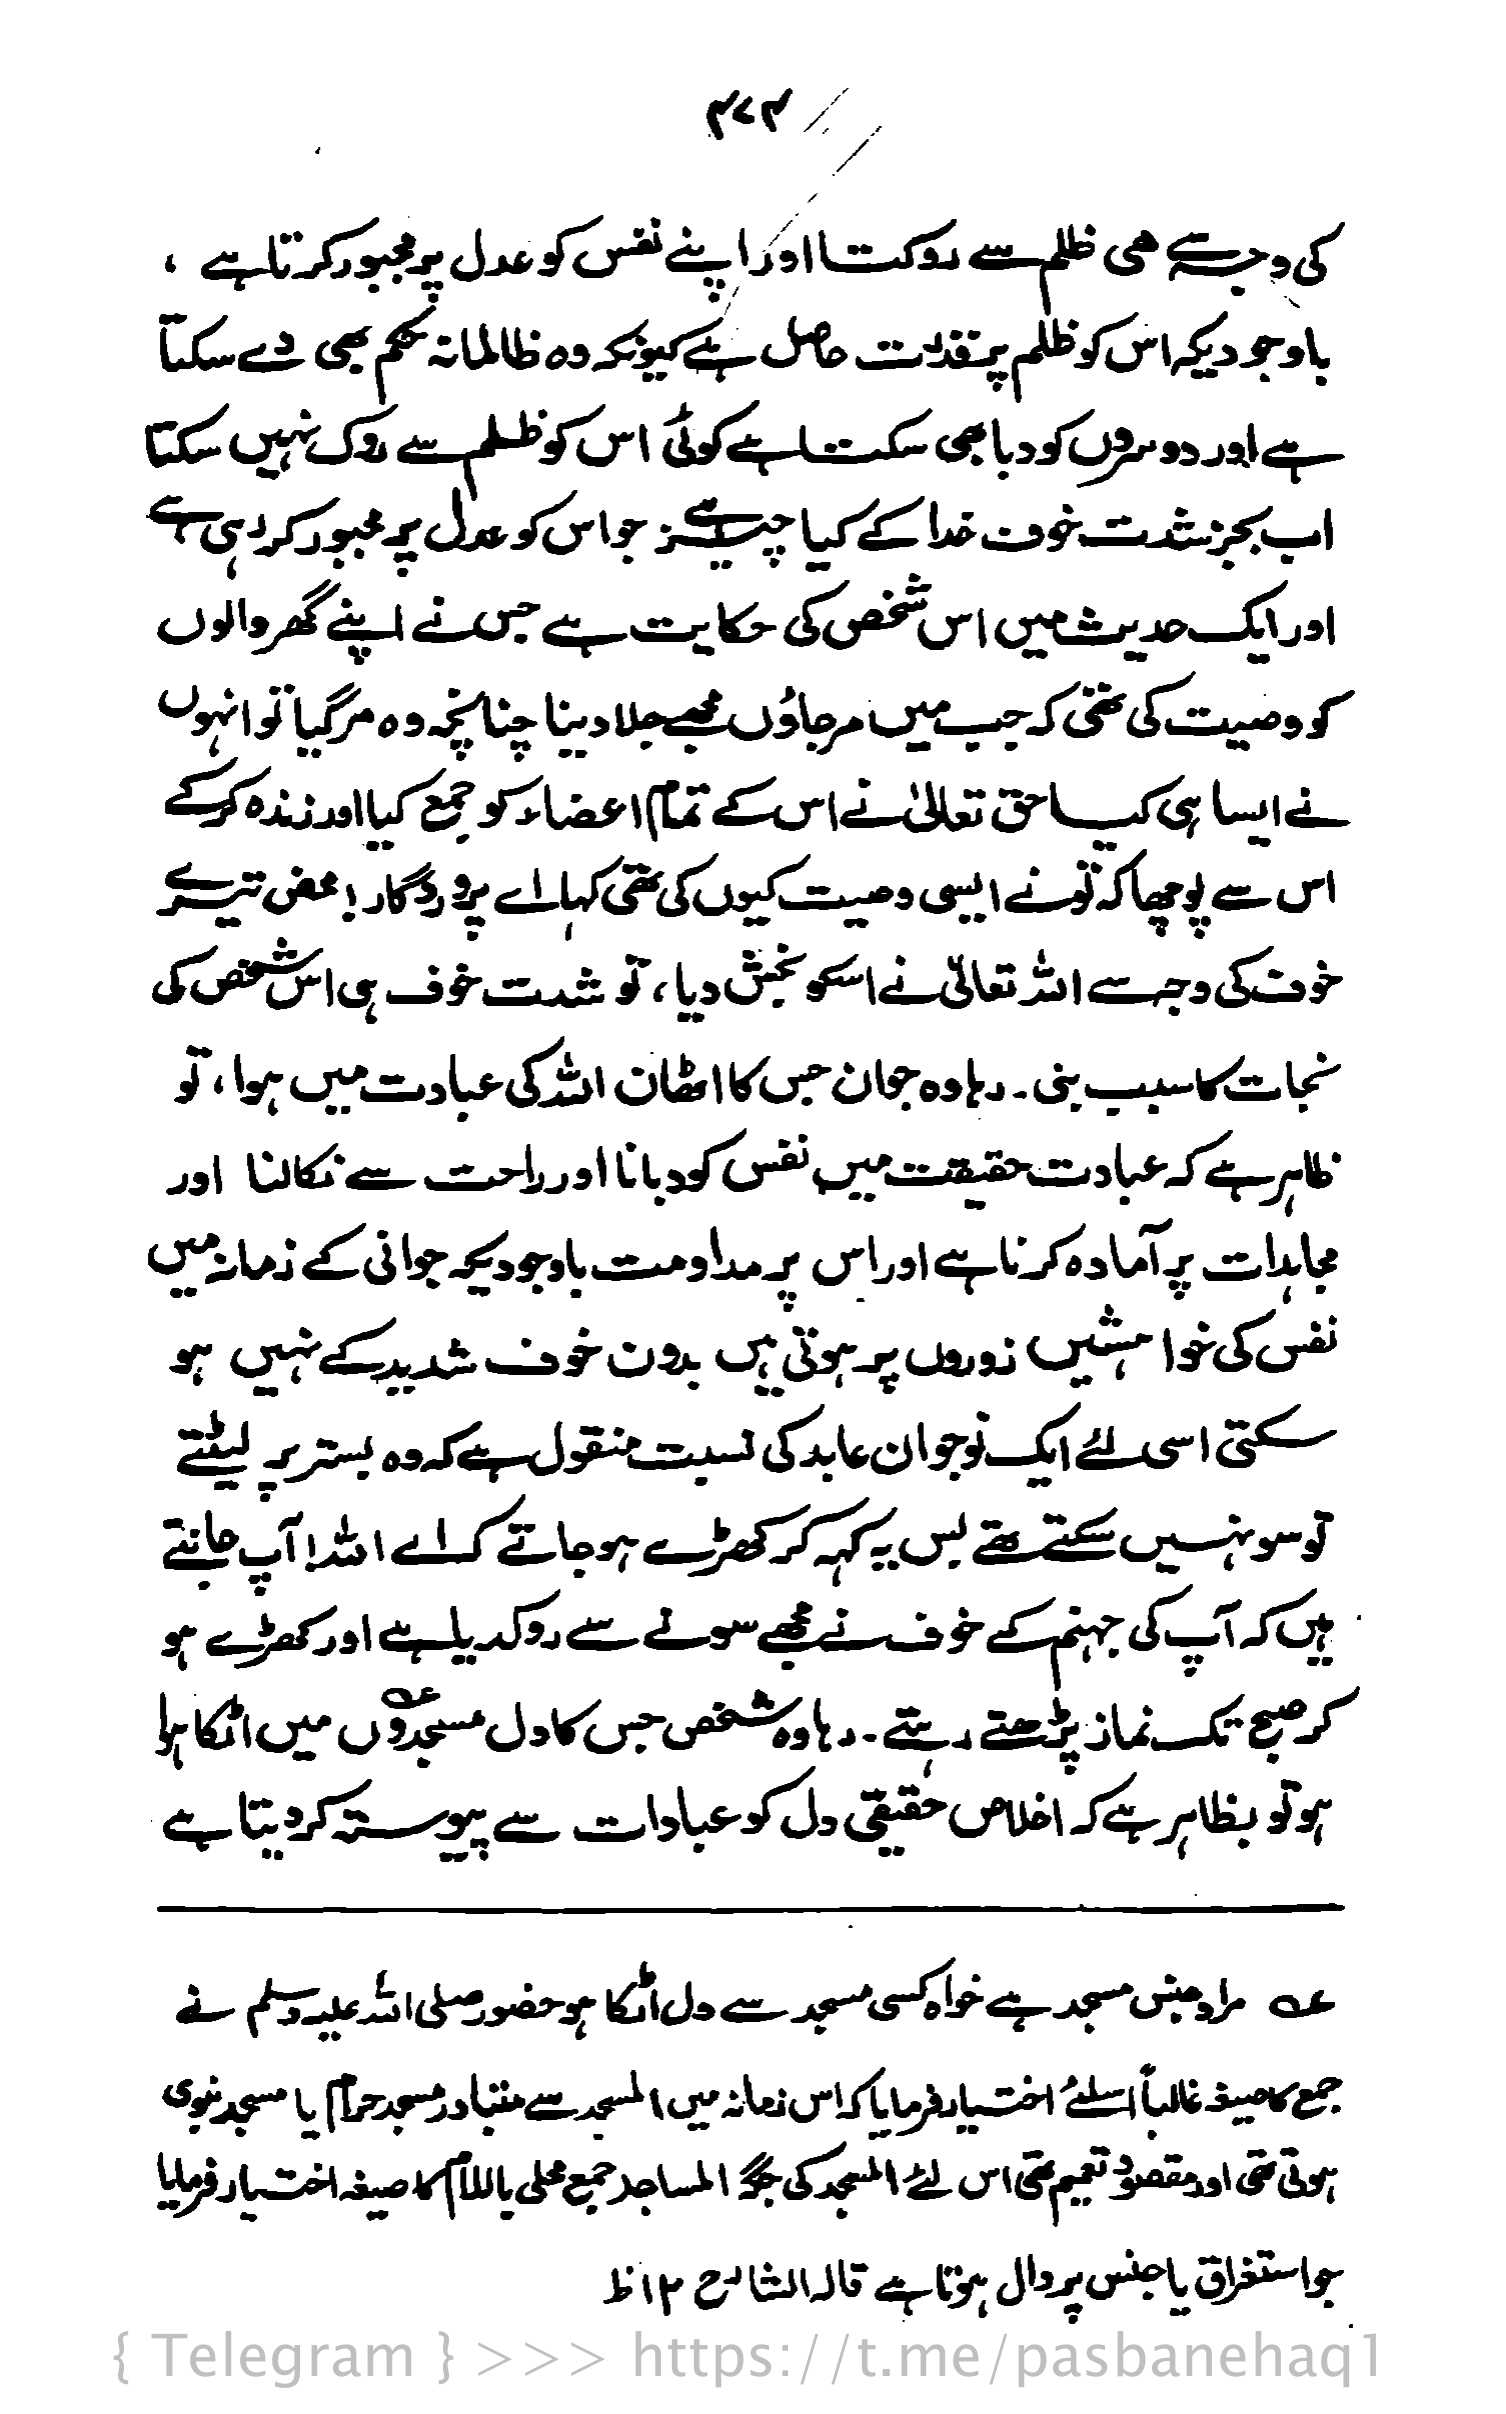 ۴۷۴
کی وجہ سے ہی ظلم سے روکتا اور اپنے نفس کو عدل پر مجبور کرتا ہے ،
باوجودیکہ اس کو ظلم پر قدرت حاصل ہے کیونکہ وہ ظالمانہ حکم بھی دے سکتا
ہے اور دوسروں کو دبا بھی سکتا ہے کوئی اس کو ظلم سے روک نہیں سکتا
اب بجز شدت خوف خدا کے کیا چیز ہے جو اس کو عدل پر مجبور کر رہی ہے
اور ایک حدیث میں اس شخص کی حکایت ہے جس نے اپنے گھر والوں
کو وصیت کی تھی کہ جب میں مر جاؤں مجھے جلا دینا چنانچہ وہ مر گیا تو انہوں
نے ایسا ہی کیا حق تعالیٰ نے اس کے تمام اعضاء کو جمع کیا اور زندہ کر کے
اس سے پوچھا کہ تو نے ایسی وصیت کیوں کی تھی کہا اے پروردگار ! محض تیرے
خوف کی وجہ سے اللہ تعالیٰ نے اسکو بخش دیا ، تو شدت خوف ہی اس شخص کی
نجات کا سبب بنی ۔ رہا وہ جوان جس کا اٹھان اللہ کی عبادت میں ہوا ، تو
ظاہر ہے کہ عبادت حقیقت میں نفس کو دبانا اور راحت سے نکالنا اور
مجاہدات پر آمادہ کرنا ہے اور اس پر مداومت باوجودیکہ جوانی کے زمانہ میں
نفس کی خواہشیں زوروں پر ہوتی ہیں بدون خوف شدید کے نہیں ہو
سکتی اسی لئے ایک نوجوان عابد کی نسبت منقول ہے کہ وہ بستر پر لیٹتے
تو سو نہیں سکتے تھے بس یہ کہہ کر کھڑے ہو جاتے کہ اے اللہ ! آپ جانتے
ہیں کہ آپ کی جہنم کے خوف نے مجھے سونے سے روکدیا ہے اور کھڑے ہو
کر صبح تک نماز پڑھتے رہتے ۔ رہا وہ شخص جس کا دل مسجدوں عہ میں اٹکا ہوا
ہو تو بظاہر ہے کہ اخلاص حقیقی دل کو عبادات سے پیوستہ کر دیتا ہے
عہ مراد جنس مسجد ہے خواہ کسی مسجد سے دل اٹکا ہو حضور صلی اللہ علیہ وسلم نے
جمع کا صیغہ غالباً اسلئے اختیار فرمایا کہ اس زمانہ میں المسجد سے متبادر مسجد حرام یا مسجد نبوی
ہوتی تھی اور مقصود تعمیم تھی اس لئے المسجد کی جگہ المساجد جمع محلی باللام کا صیغہ اختیار فرمایا
جو استغراق یا جنس پر دال ہوتا ہے قالہ الشارح ۱۲ ظ
{ Telegram } >>> https://t.me/pasbanehaq1